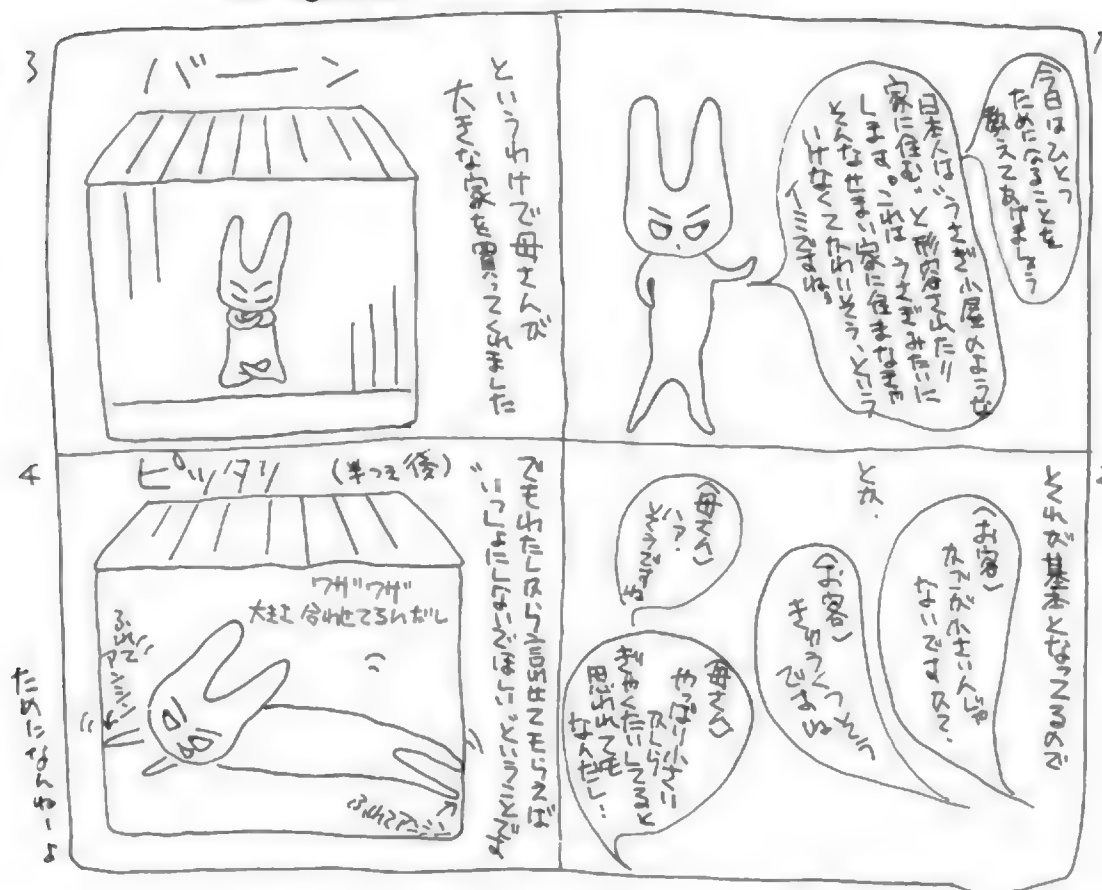 1
今日はひとつ
ためになることを
教えてあげましょう
日本人は"うさぎ小屋のような
家に住む"と形容されたり
します。これは うさぎみたいに
そんなせまい家に住まなきゃ
いけなくてかわいそう、という
イミですね。
2
それが基本となってるので
(お客)
カゴが小さいんじゃ
ないですか?
(お客)
きゅうくつそう
ですね
とか.
(母さん)
そうですね
(母さん)
やっぱり小さい
かしら
ぎゃくたいしてると
思われても
なんだし…
3
というわけで母さんが
大きな家を買ってくれました
バーン
4
でもわたしから言わせてもらえば
(半つき後)
ピッタリ
ワザワザ
大きさ 合わせてるんだし
ふれてアンシン
ふれてアンシン
ためになんねーよ